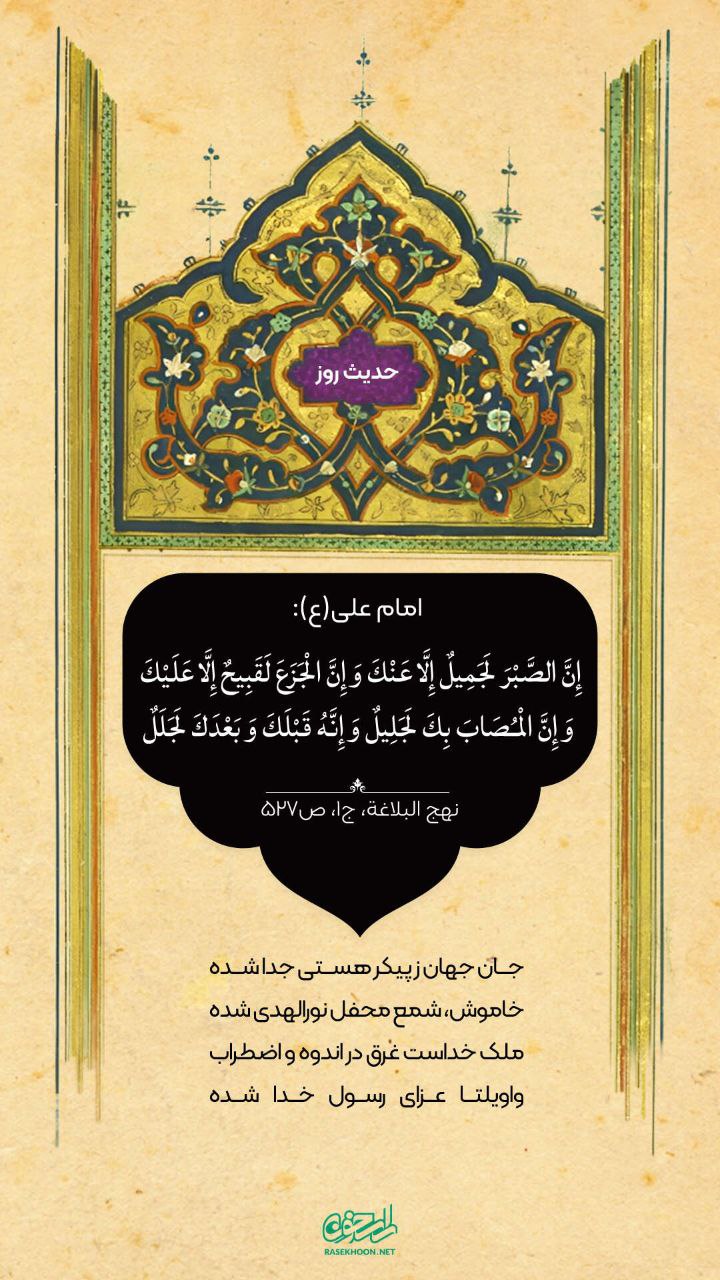 حدیث روز
امام علی(ع):
إِنَّ الصَّبْرَ لَجَمِيلٌ إِلَّا عَنْكَ وَ إِنَّ الْجَزَعَ لَقَبِيحٌ إِلَّا عَلَيْكَ
وَ إِنَّ الْمُصَابَ بِكَ لَجَلِيلٌ وَ إِنَّهُ قَبْلَكَ وَ بَعْدَكَ لَجَلَلٌ
نهج البلاغة، ج۱، ص۵۲۷
جان جهان ز پیکر هستی جدا شده
خاموش، شمع محفل نورالهدی شده
ملک خداست غرق در اندوه و اضطراب
واویلتا عزای رسول خدا شده
راسخون
RASEKHOON.NET